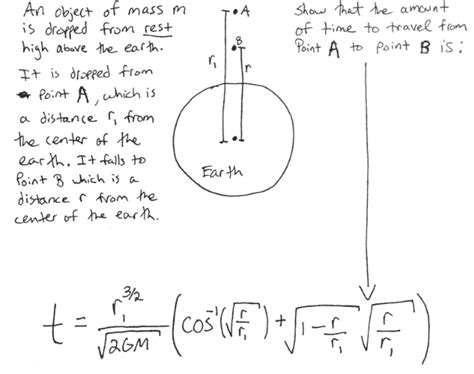 An object of mass m
is dropped from rest
high above the earth.
It is dropped from
Point A, which is
a distance r₁ from
the center of the
earth. It falls to
Point B which is a
distance r from the
center of the earth.
A
B
r₁
r
Earth
Show that the amount
of time to travel from
Point A to Point B is:
t = r₁^(3/2)/√(2GM) (cos⁻¹(√(r/r₁)) + √(1 - r/r₁) √(r/r₁))